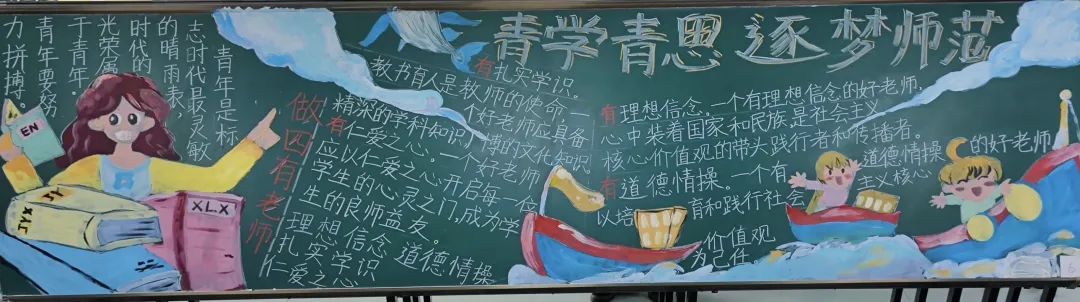 青学青思逐梦师范
青年是标
志时代最灵敏
的晴雨表
时代的
光荣属
于青年。
青年要努
力拼搏。
EN
XL.X
做四有老师
有扎实学识。
教书育人是教师的使命,一
个好老师应具备
精深的学科知识,广博的文化知识
有仁爱之心。一个好老师
应以仁爱之心开启每一位
学生的心灵之门,成为学
生的良师益友。
理想信念 道德情操
扎实学识
仁爱之心
有理想信念。一个有理想信念的好老师,
心中装着国家和民族是社会主义
核心价值观的带头践行者和传播者。
有道德情操。一个有道德情操的好老师
以培育和践行社会主义核心
价值观
为己任